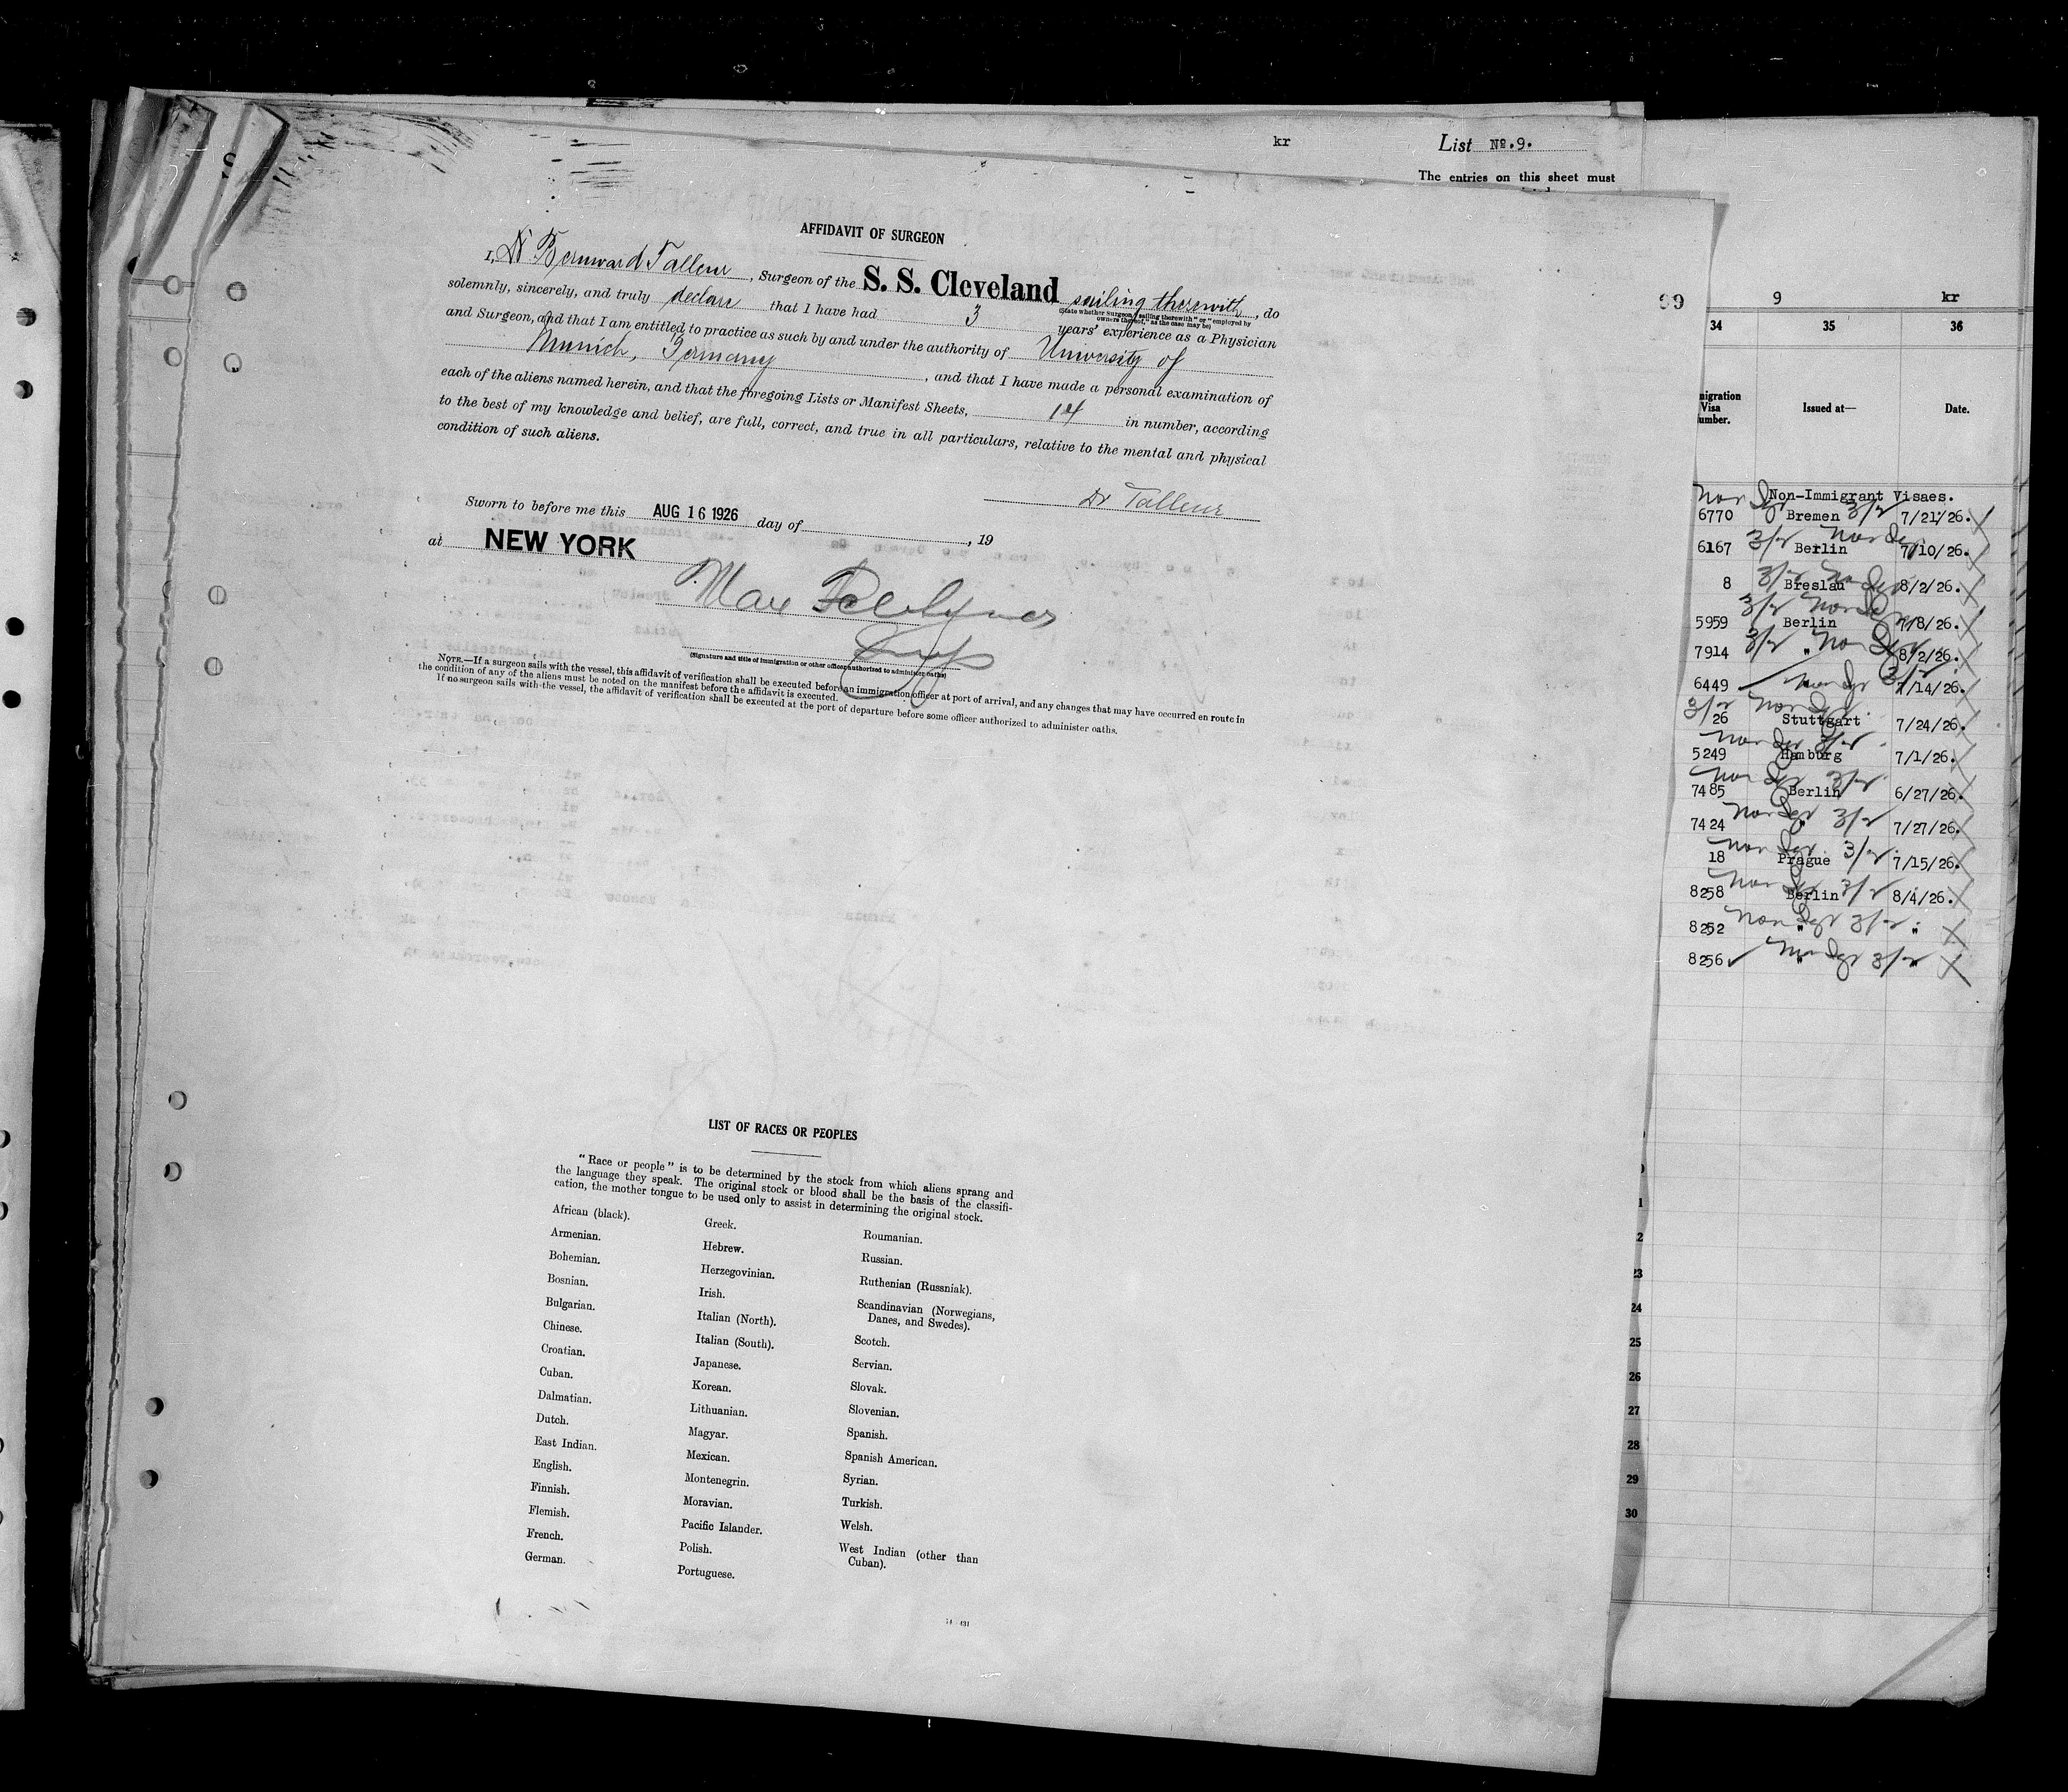 kr
List No. 9.
The entries on this sheet must
AFFIDAVIT OF SURGEON
I, Dr Bernward Talleur, Surgeon of the S. S. Cleveland sailing therewith, do
(State whether Surgeon "sailing therewith" or "employed by
owners thereof," as the case may be)
solemnly, sincerely, and truly declare that I have had 3 years' experience as a Physician
and Surgeon, and that I am entitled to practice as such by and under the authority of University of
Munich, Germany, and that I have made a personal examination of
each of the aliens named herein, and that the foregoing Lists or Manifest Sheets, 14 in number, according
to the best of my knowledge and belief, are full, correct, and true in all particulars, relative to the mental and physical
condition of such aliens.
Dr Talleur
Sworn to before me this AUG 16 1926 day of , 19
at NEW YORK
Max
Insp
(Signature and title of immigration or other officer authorized to administer oaths)
NOTE.—If a surgeon sails with the vessel, this affidavit of verification shall be executed before an immigration officer at port of arrival, and any changes that may have occurred en route in
the condition of any of the aliens must be noted on the manifest before the affidavit is executed.
If no surgeon sails with the vessel, the affidavit of verification shall be executed at the port of departure before some officer authorized to administer oaths.
LIST OF RACES OR PEOPLES
"Race or people" is to be determined by the stock from which aliens sprang and
the language they speak. The original stock or blood shall be the basis of the classifi-
cation, the mother tongue to be used only to assist in determining the original stock.
African (black).
Armenian.
Bohemian.
Bosnian.
Bulgarian.
Chinese.
Croatian.
Cuban.
Dalmatian.
Dutch.
East Indian.
English.
Finnish.
Flemish.
French.
German.
Greek.
Hebrew.
Herzegovinian.
Irish.
Italian (North).
Italian (South).
Japanese.
Korean.
Lithuanian.
Magyar.
Mexican.
Montenegrin.
Moravian.
Pacific Islander.
Polish.
Portuguese.
Roumanian.
Russian.
Ruthenian (Russniak).
Scandinavian (Norwegians,
Danes, and Swedes).
Scotch.
Servian.
Slovak.
Slovenian.
Spanish.
Spanish American.
Syrian.
Turkish.
Welsh.
West Indian (other than
Cuban).
99 9 kr
34 35 36
migration
Visa
umber.
Issued at—
Date.
Non-Immigrant Visaes.
6770 Bremen 7/21/26.
6167 Berlin 7/10/26.
8 Breslau 8/2/26.
5959 Berlin 7/8/26.
7914 " 8/2/26.
6449 " 7/14/26.
26 Stuttgart 7/24/26.
5249 Hamburg 7/1/26.
7485 Berlin 6/27/26.
7424 " 7/27/26.
18 Prague 7/15/26.
8258 Berlin 8/4/26.
8252 " "
8256 " "
23
24
25
26
27
28
29
30